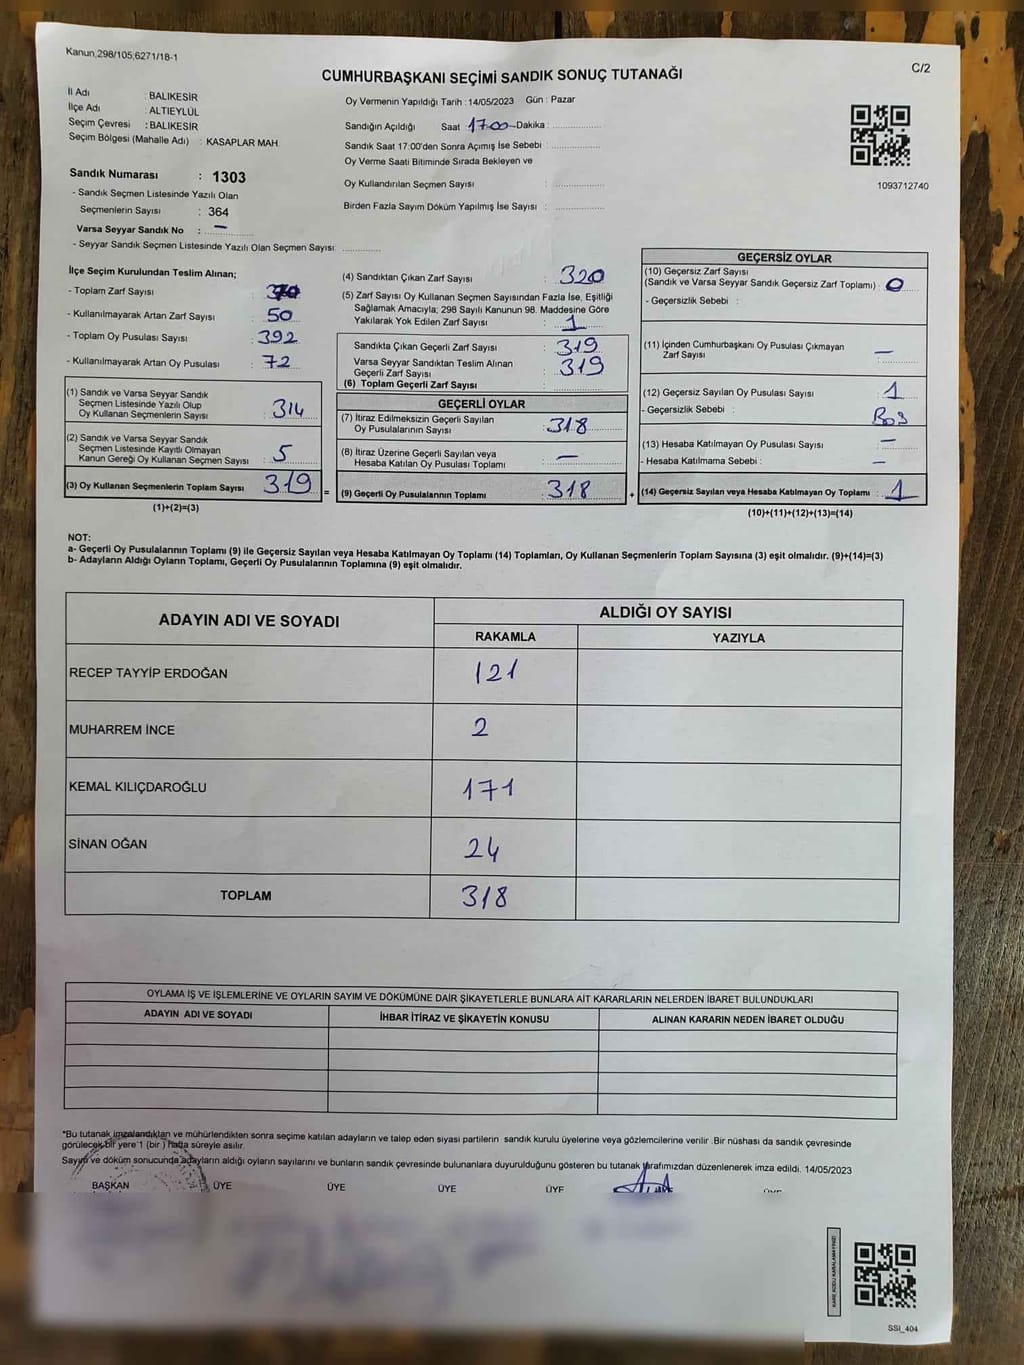 Kanun,298/105;6271/18-1
C/2
CUMHURBAŞKANI SEÇİMİ SANDIK SONUÇ TUTANAĞI
İl Adı : BALIKESİR
İlçe Adı : ALTIEYLÜL
Seçim Çevresi : BALIKESİR
Seçim Bölgesi (Mahalle Adı) : KASAPLAR MAH.
Sandık Numarası : 1303
- Sandık Seçmen Listesinde Yazılı Olan
Seçmenlerin Sayısı : 364
Varsa Seyyar Sandık No : —
- Seyyar Sandık Seçmen Listesinde Yazılı Olan Seçmen Sayısı:
Oy Vermenin Yapıldığı Tarih : 14/05/2023 Gün : Pazar
Sandığın Açıldığı Saat 17:00 Dakika :
Sandık Saat 17:00'den Sonra Açımış İse Sebebi :
Oy Verme Saati Bitiminde Sırada Bekleyen ve
Oy Kullandırılan Seçmen Sayısı :
Birden Fazla Sayım Döküm Yapılmış İse Sayısı :
1093712740
İlçe Seçim Kurulundan Teslim Alınan;
- Toplam Zarf Sayısı : 370
- Kullanılmayarak Artan Zarf Sayısı : 50
- Toplam Oy Pusulası Sayısı : 392
- Kullanılmayarak Artan Oy Pusulası : 72
(1) Sandık ve Varsa Seyyar Sandık
Seçmen Listesinde Yazılı Olup
Oy Kullanan Seçmenlerin Sayısı : 314
(2) Sandık ve Varsa Seyyar Sandık
Seçmen Listesinde Kayıtlı Olmayan
Kanun Gereği Oy Kullanan Seçmen Sayısı : 5
(3) Oy Kullanan Seçmenlerin Toplam Sayısı : 319
(1)+(2)=(3)
(4) Sandıktan Çıkan Zarf Sayısı : 320
(5) Zarf Sayısı Oy Kullanan Seçmen Sayısından Fazla İse, Eşitliği
Sağlamak Amacıyla; 298 Sayılı Kanunun 98. Maddesine Göre
Yakılarak Yok Edilen Zarf Sayısı : 1
Sandıkta Çıkan Geçerli Zarf Sayısı : 319
Varsa Seyyar Sandıktan Teslim Alınan
Geçerli Zarf Sayısı : 319
(6) Toplam Geçerli Zarf Sayısı :
GEÇERLİ OYLAR
(7) İtiraz Edilmeksizin Geçerli Sayılan
Oy Pusulalarının Sayısı : 318
(8) İtiraz Üzerine Geçerli Sayılan veya
Hesaba Katılan Oy Pusulası Toplamı : —
= (9) Geçerli Oy Pusulalarının Toplamı : 318 +
GEÇERSİZ OYLAR
(10) Geçersiz Zarf Sayısı
(Sandık ve Varsa Seyyar Sandık Geçersiz Zarf Toplamı) : 0
- Geçersizlik Sebebi :
(11) İçinden Cumhurbaşkanı Oy Pusulası Çıkmayan
Zarf Sayısı : —
(12) Geçersiz Sayılan Oy Pusulası Sayısı : 1
- Geçersizlik Sebebi : Boş
(13) Hesaba Katılmayan Oy Pusulası Sayısı : —
- Hesaba Katılmama Sebebi : —
(14) Geçersiz Sayılan veya Hesaba Katılmayan Oy Toplamı : 1
(10)+(11)+(12)+(13)=(14)
NOT:
a- Geçerli Oy Pusulalarının Toplamı (9) ile Geçersiz Sayılan veya Hesaba Katılmayan Oy Toplamı (14) Toplamları, Oy Kullanan Seçmenlerin Toplam Sayısına (3) eşit olmalıdır. (9)+(14)=(3)
b- Adayların Aldığı Oyların Toplamı, Geçerli Oy Pusulalarının Toplamına (9) eşit olmalıdır.
ADAYIN ADI VE SOYADI
ALDIĞI OY SAYISI
RAKAMLA YAZIYLA
RECEP TAYYİP ERDOĞAN 121
MUHARREM İNCE 2
KEMAL KILIÇDAROĞLU 171
SİNAN OĞAN 24
TOPLAM 318
OYLAMA İŞ VE İŞLEMLERİNE VE OYLARIN SAYIM VE DÖKÜMÜNE DAİR ŞİKAYETLERLE BUNLARA AİT KARARLARIN NELERDEN İBARET BULUNDUKLARI
ADAYIN ADI VE SOYADI İHBAR İTİRAZ VE ŞİKAYETİN KONUSU ALINAN KARARIN NEDEN İBARET OLDUĞU
*Bu tutanak imzalandıktan ve mühürlendikten sonra seçime katılan adayların ve talep eden siyasi partilerin sandık kurulu üyelerine veya gözlemcilerine verilir .Bir nüshası da sandık çevresinde
görülecek bir yere 1 (bir ) hafta süreyle asılır.
Sayım ve döküm sonucunda adayların aldığı oyların sayılarını ve bunların sandık çevresinde bulunanlara duyurulduğunu gösteren bu tutanak tarafımızdan düzenlenerek imza edildi. 14/05/2023
BAŞKAN ÜYE ÜYE ÜYE ÜYE
KARE KODU KARALAMAYINIZ!
SSI_404